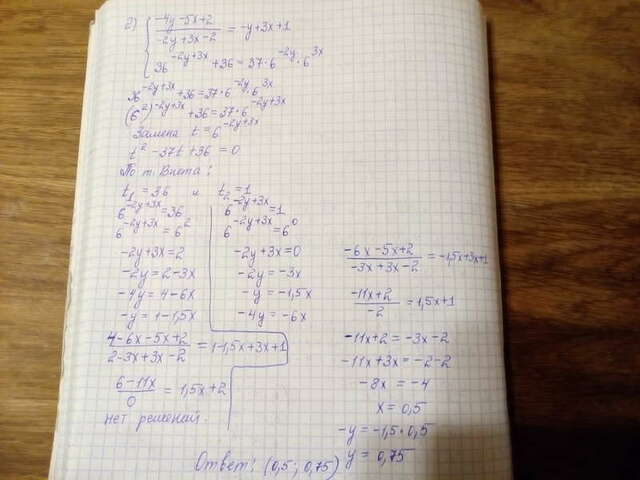 2) { (-4y-5x+2)/(-2y+3x-2) = -y+3x+1
36^(-2y+3x) +36 = 37·6^(-2y)·6^(3x)
36^(-2y+3x) +36 = 37·6^(-2y)·6^(3x)
(6²)^(-2y+3x) +36 = 37·6^(-2y+3x)
Замена t = 6^(-2y+3x)
t² -37t +36 = 0
По т. Виета:
t₁ = 36 и t₂ = 1
6^(-2y+3x) = 36
6^(-2y+3x) = 6²
-2y+3x = 2
-2y = 2-3x
-4y = 4-6x
-y = 1-1,5x
(4-6x-5x+2)/(2-3x+3x-2) = 1-1,5x+3x+1
(6-11x)/0 = 1,5x+2
нет решений.
6^(-2y+3x) = 1
6^(-2y+3x) = 6⁰
-2y+3x = 0
-2y = -3x
-y = -1,5x
-4y = -6x
(-6x-5x+2)/(-3x+3x-2) = -1,5x+3x+1
(-11x+2)/(-2) = 1,5x+1
-11x+2 = -3x-2
-11x+3x = -2-2
-8x = -4
x = 0,5
-y = -1,5·0,5
y = 0,75
Ответ: (0,5; 0,75)